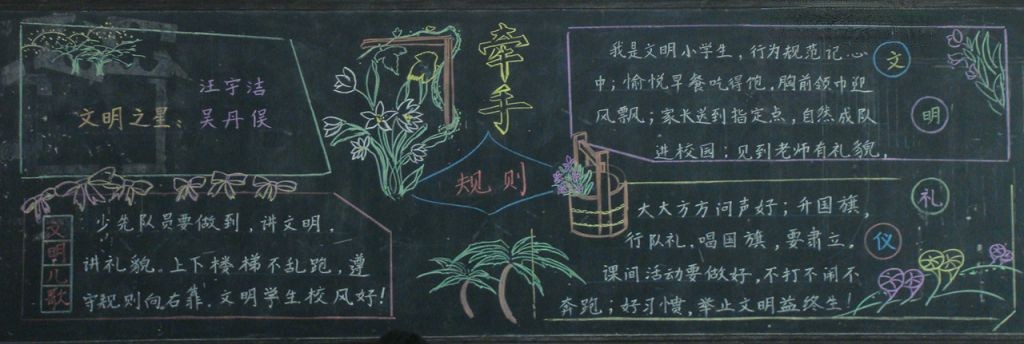 汪宇洁
文明之星：吴丹俣
牵手
规则
我是文明小学生，行为规范记心
中；愉悦早餐吃得饱，胸前领巾迎
风飘；家长送到指定点，自然成队
进校园；见到老师有礼貌，
文
明
大大方方问声好；升国旗，
行队礼、唱国旗，要肃立。
课间活动要做好，不打不闹不
奔跑；好习惯，举止文明益终生！
礼
仪
文明儿歌
少先队员要做到，讲文明．
讲礼貌。上下楼梯不乱跑，遵
守规则向右靠．文明学生校风好！